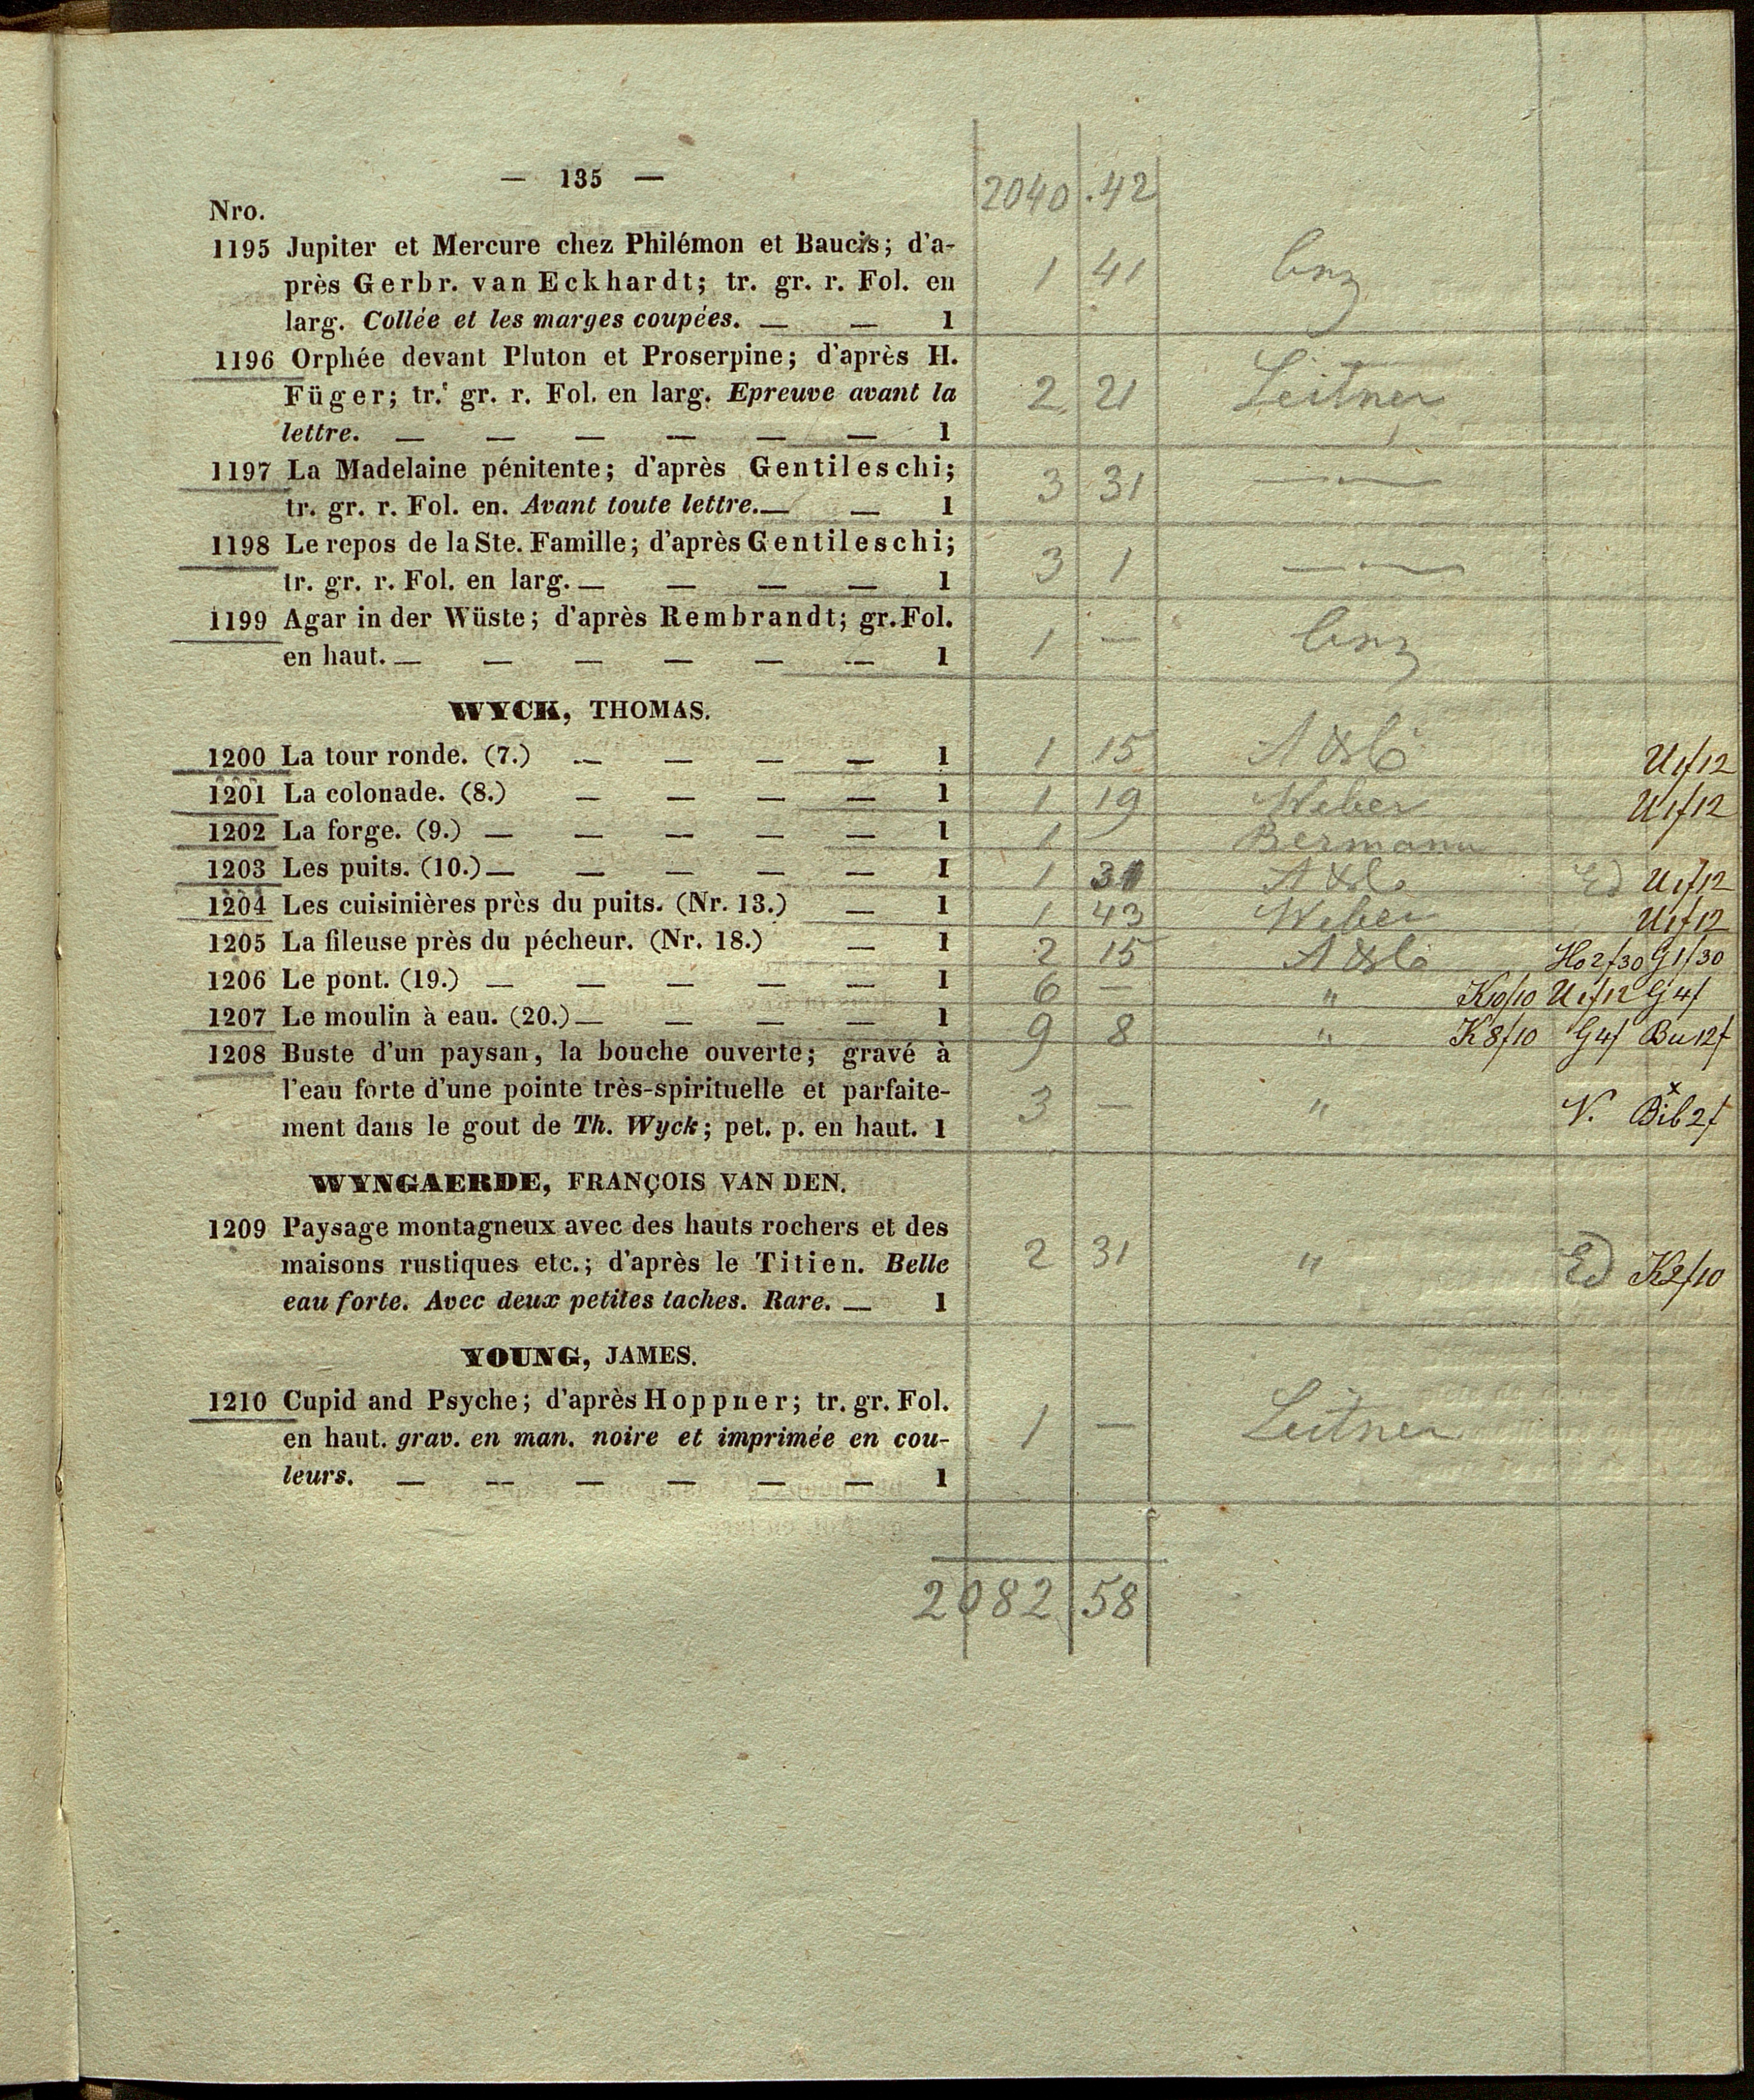 — 135 —
2040 . 42
Nro.
1195 Jupiter et Mercure chez Philémon et Baucis; d'a-
près Gerbr. van Eckhardt; tr. gr. r. Fol. en 1 41
larg. Collée et les marges coupées. — — 1
1196 Orphée devant Pluton et Proserpine; d'après H.
Füger; tr. gr. r. Fol. en larg. Epreuve avant la 2 21 Leitner
lettre. — — — — — — 1
1197 La Madelaine pénitente; d'après Gentileschi; 3 31 —·—
tr. gr. r. Fol. en. Avant toute lettre. — — 1
1198 Le repos de la Ste. Famille; d'après Gentileschi; 3 1 —·—
tr. gr. r. Fol. en larg. — — — — 1
1199 Agar in der Wüste; d'après Rembrandt; gr. Fol. 1 —
en haut. — — — — — — 1
WYCK, THOMAS.
1200 La tour ronde. (7.) — — — — 1 1 15 U1f12
1201 La colonade. (8.) — — — — 1 1 19 Weber U1f12
1202 La forge. (9.) — — — — — 1 1 Bermann
1203 Les puits. (10.) — — — — — 1 1 31 Ed U1f12
1204 Les cuisinières près du puits. (Nr. 13.) — 1 1 43 Weber U1f12
1205 La fileuse près du pécheur. (Nr. 18.) — 1 2 15 Ho2f30 G1f30
1206 Le pont. (19.) — — — — — 1 6 — " K10f10 U1f12 G4f
1207 Le moulin à eau. (20.) — — — — 1 9 8 " K8f10 G4f Bu12f
1208 Buste d'un paysan, la bouche ouverte; gravé à
l'eau forte d'une pointe très-spirituelle et parfaite- 3 — " N. Bib2f
ment dans le gout de Th. Wyck; pet. p. en haut. 1
WYNGAERDE, FRANÇOIS VAN DEN.
1209 Paysage montagneux avec des hauts rochers et des
maisons rustiques etc.; d'après le Titien. Belle 2 31 " Ed K2f10
eau forte. Avec deux petites taches. Rare. — 1
YOUNG, JAMES.
1210 Cupid and Psyche; d'après Hoppner; tr. gr. Fol.
en haut. grav. en man. noire et imprimée en cou- 1 — Leitner
leurs. — — — — — — 1
2082 58